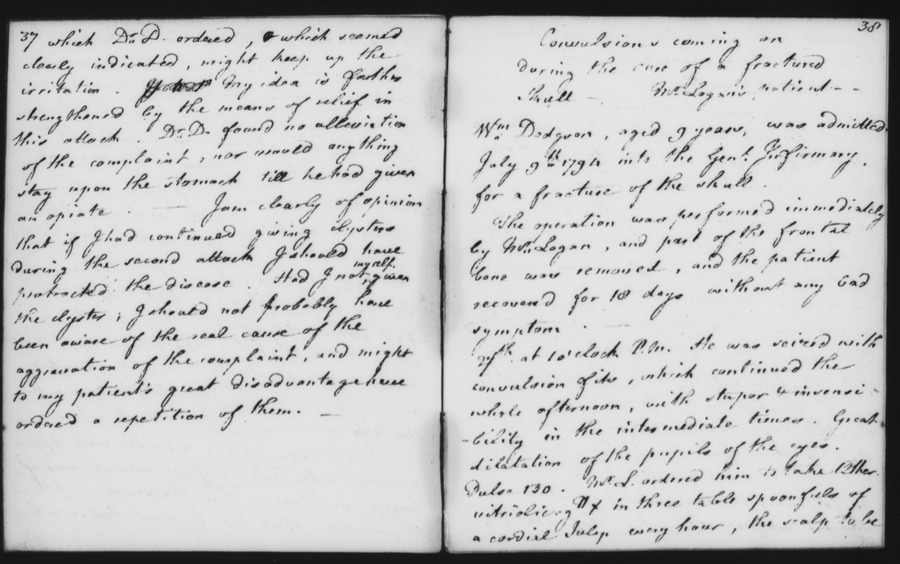 37 which Dr. D. ordered, & which seemed
clearly indicated, might keep up the
irritation. My idea is farther
strengthened by the means of relief in
this attack. Dr. D. found no alleviation
of the complaint, nor would anything
stay upon the stomach till he had given
an opiate. — I am clearly of opinion
that if I had continued giving clysters
during the second attack I should have
protracted the disease. Had I not myself given
the clyster, I should not probably have
been aware of the real cause of the
aggravation of the complaint, and might
to my patient's great disadvantage have
ordered a repetition of them. —
38
Convulsions coming on
during the cure of a fractured
Skull — Mr. Logan's patient - -
Wm. Dodgson, aged 9 years, was admitted
July 9th 1794 into the Genl. Infirmary,
for a fracture of the skull.
The operation was performed immediately
by Mr. Logan, and part of the frontal
bone was removed, and the patient
recovered for 18 days without any bad
symptom.
27th. at 1 o'clock P.M. He was seized with
convulsion fits, which continued the
whole afternoon, with stupor & insensi-
-bility in the intermediate times. Great
dilatation of the pupils of the eyes.
Pulse 130. Mr. L. ordered him to take Æther.
vitriolic. g tt x in three table spoonfuls of
a cordial Julep every hour, the scalp to be